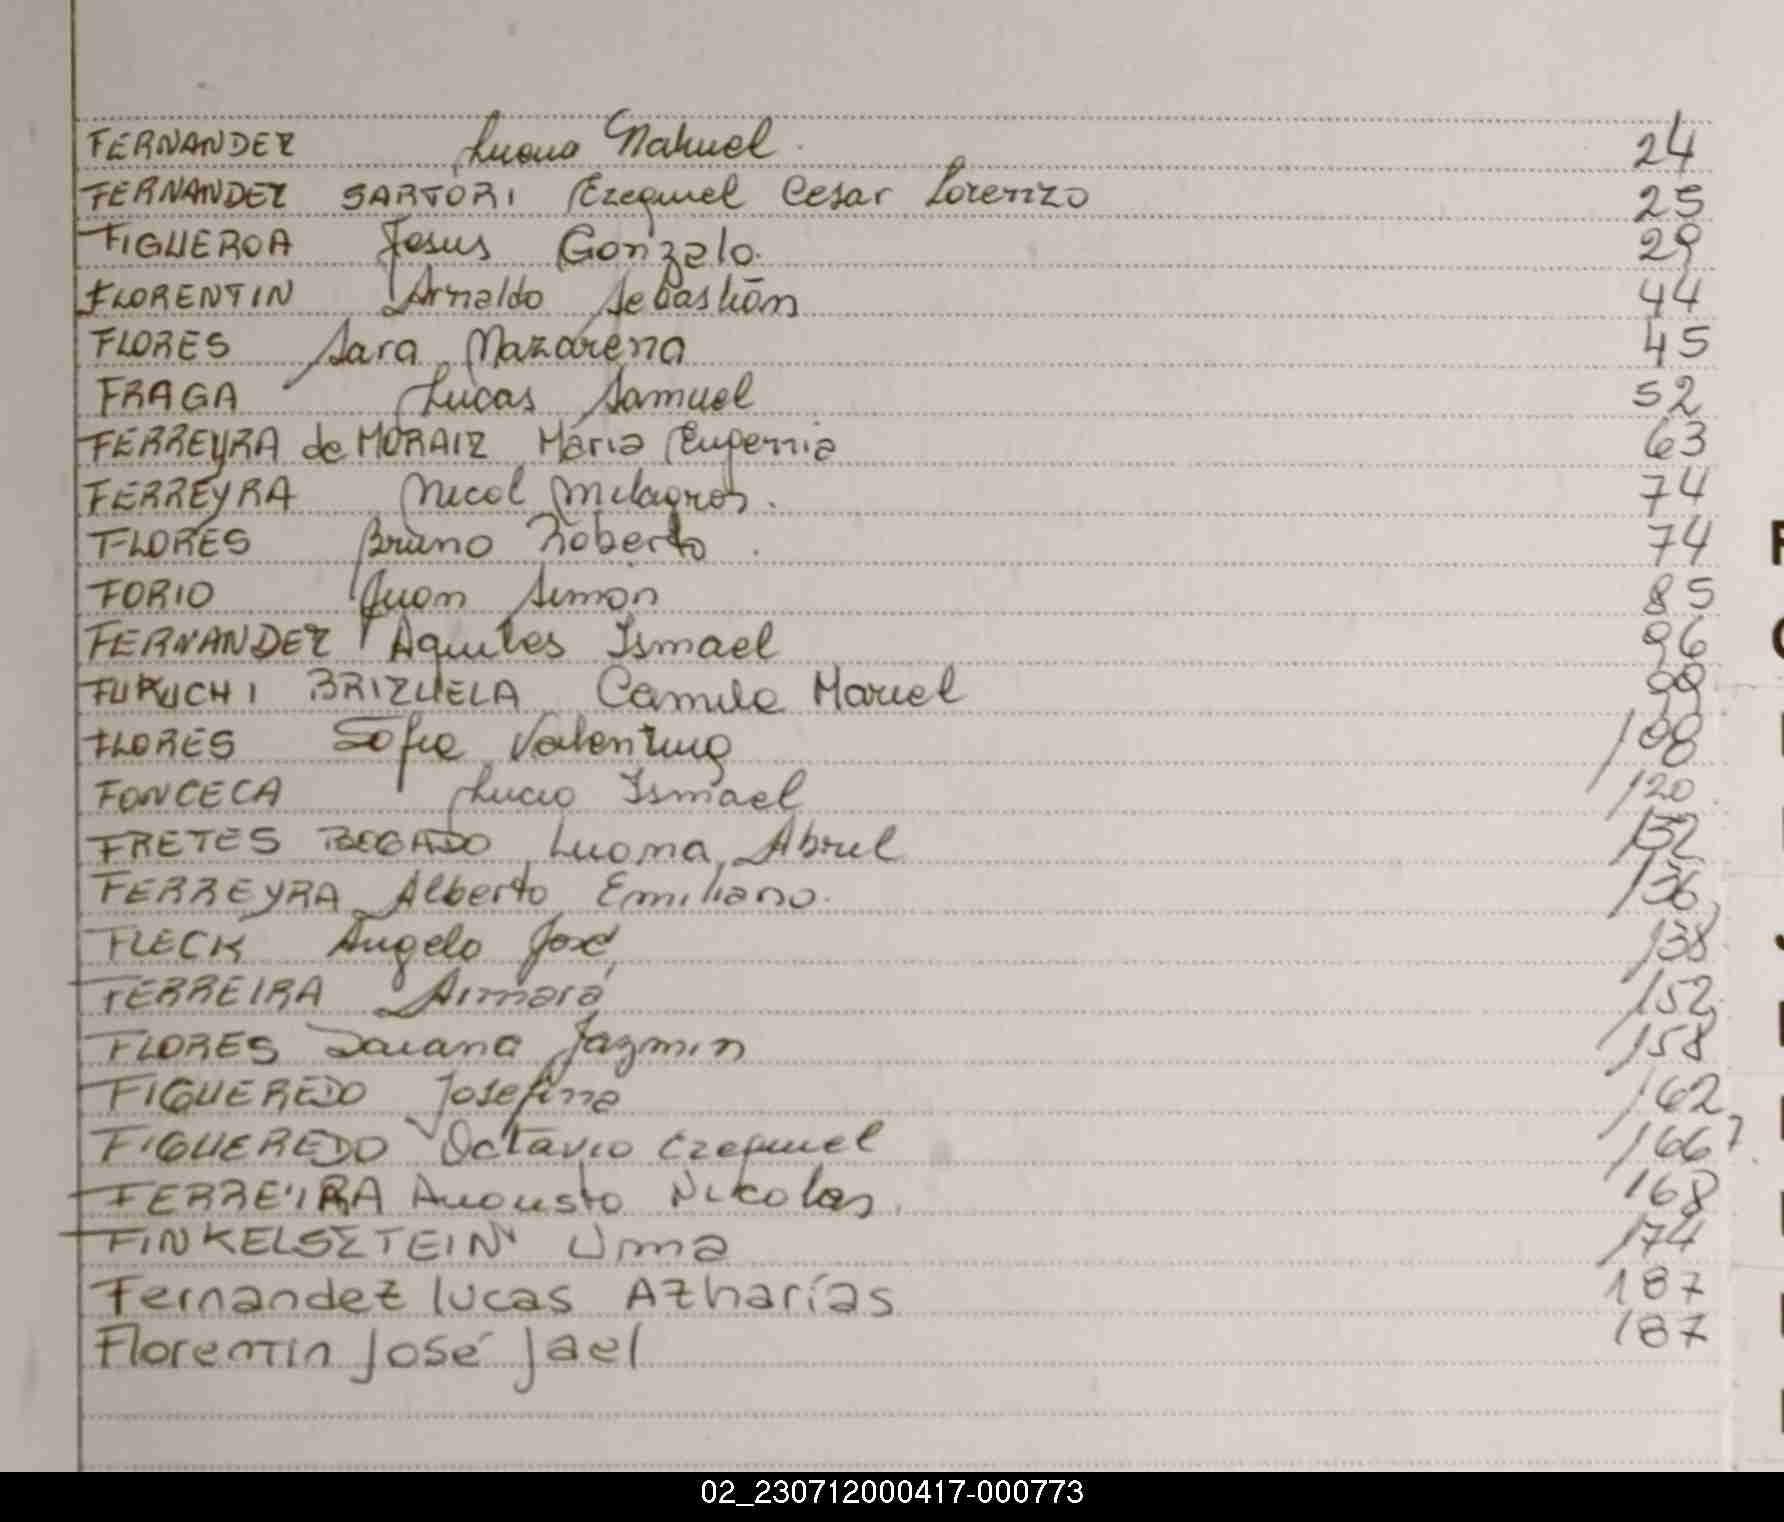 FERNANDEZ Luana Nahuel 24
FERNANDEZ SARTORI Ezequiel Cesar Lorenzo 25
FIGUEROA Jesus Gonzalo. 29
FLORENTIN Arnaldo Sebastián 44
FLORES Sara Nazarena 45
FRAGA Lucas Samuel 52
FERREYRA de MORAIZ Maria Eugenia 63
FERREYRA Nicol Milagros. 74
FLORES Bruno Roberto. 74
FORIO Juan Simón 85
FERNANDEZ Aquiles Ismael 96
FURUCHI BRIZUELA Camila Mariel 99
FLORES Sofia Valentina 108
FONCECA Lucio Ismael 120
FRETES BOGADO Luana Abril 132
FERREYRA Alberto Emiliano. 136
FLECK Angelo José 138
FERREIRA Aimará 152
FLORES Daiana Jazmin 158
FIGUEREDO Josefina 162
FIGUEREDO Octavio Ezequiel 166
FERREIRA Augusto Nicolas. 168
FINKELSZTEIN Uma 174
Fernandez lucas Azharías 187
Florentin José Jael 187
02_230712000417-000773